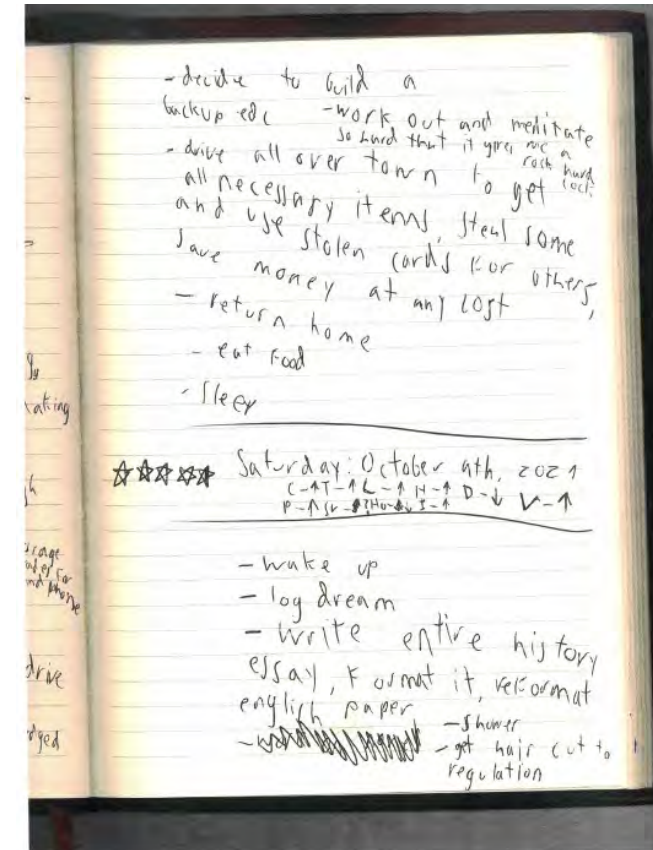 - decide to build a
backup edc
- work out and meditate
so hard that it gives me a
rock hard
cock
- drive all over town to get
all necessary items, steal some
and use stolen cards for others,
save money at any cost
- return home
- eat food
- sleep
Saturday: October 9th, 2021
C-↑ T-↑ L-↑ H-↑ D-↓ V-↑
P-↑
- wake up
- log dream
- write entire history
essay, format it, reformat
english paper
- shower
- get hair cut to
regulation
aking
drive
dged